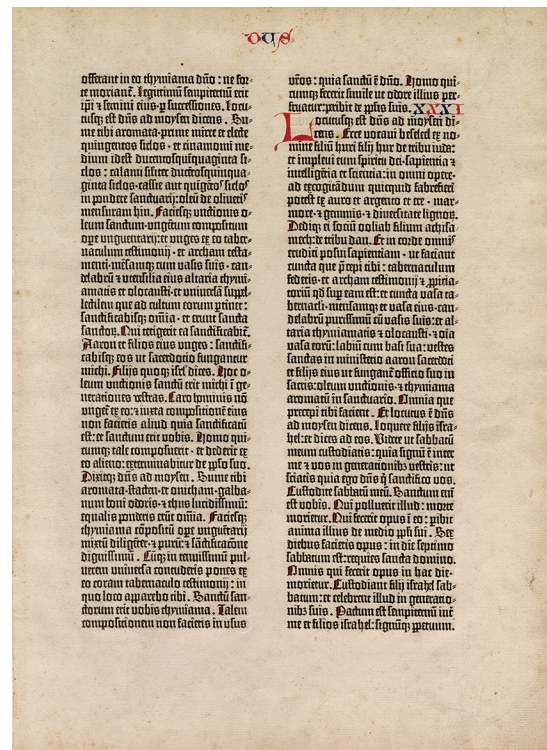 ous
offerant in eo thymiama dño : ne for-
te moriant̃. Legitimũ sempiternũ erit
ip̃i ⁊ semini eius p̲ successiones. Locu-
tusq̃ est dñs ad moysen dicens . Su-
me tibi aromata · prime mirre et electe
quingentos siclos · et cinamomi me-
dium idest ducentosquinquaginta si-
clos : calami similiter ducẽtosquinqua-
ginta siclos · cassie aut̃ quĩgẽtos siclos
in pondere sanctuarij : olei de olivetis
mensuram hin. Faciesq̃ unctionis o-
leum sanctum · ungẽtum compositum
op̲e unguentarij : et unges ex eo taber-
naculum testimonij · et archam testa-
menti · mẽsamq̃ cum vasis suis · can-
delabrũ ⁊ utensilia eius · altaria thymi-
amatis et olocausti · et universã supel-
lectilem que ad cultum eorum p̲tinet :
sanctificabisq̃ om̃ia · et erunt sancta
sanctoꝝ. Qui tetigerit ea sanctificabit̃.
Aaron et filios eius unges : sanctifi-
cabisq̃ eos ut sacerdotio fungantur
michi. Filijs quoq̃ isrl̃ dices. Hoc o-
leum unctionis sanctũ erit michi ĩ ge-
nerationes vestras. Caro hominis nõ
unget̃ ex eo : ⁊ iuxta compositionẽ eius
non facietis aliud · quia sanctificatũ
est : et sanctum erit vobis. Homo qui-
cumq̃ tale composuerit · et dederit ex
eo alieno : exterminabitur de pp̃lo suo.
Dixitq̃ dñs ad moysen . Sume tibi
aromata · stacten · et onicham · galba-
num boni odoris · et thus lucidissimũ :
equalis ponderis erũt om̃ia. Faciesq̃
thymiama cõpositũ op̲e unguẽtarij
mixtũ diligẽter · ⁊ purũ : ⁊ sãctificatiõne
dignissimũ . Cũq̃ in tenuissimũ pul-
verem universa contuderis pones ex
eo coram tabernaculo testimonij : in
quo loco apparebo tibi . Sanctũ san-
ctorum erit vobis thymiama. Talem
compositionem non facietis in usus
vr̃os : quia sanctũ ẽ dño. Homo qui-
cumq̃ fecerit simile ut odore illius per-
fruatur : peribit de pp̃lis suis. XXXI
Locutusq̃ est dñs ad moysen di-
cens. Ecce vocavi beseleel ex no-
mine filiũ huri filij hur de tribu iuda :
et implevi eum spiritu dei · sapientia ⁊
intelligẽtia et scientia : in omni opere ·
ad excogitãdum quicquid fabrefieri
potest ex auro et argento et ere · mar-
more · ⁊ gemmis · ⁊ diversitate lignoꝝ.
Dediq̃ ei sociũ ooliab filium achisa-
mech : de tribu dan. Et in corde omnis
eruditi posui sapientiam · ut faciant
cuncta que p̃cepi tibi : tabernaculum
federis · et archam testimonij ⁊ p̲picia-
toriũ qd̃ sup̲ eam est : et cuncta vasa ta-
bernacli · mensamq̃ et vasa eius · can-
delabrũ purissimũ cũ vasis suis : et al-
taria thymiamatis ⁊ olocausti · ⁊ õia
vasa eorũ : labiũ cum basi sua : vestes
sanctas in ministerio aaron sacerdoti
et filijs eius ut fungant̃ officio suo in
sacris : oleum unctionis · ⁊ thymiama
aromatũ in sanctuario. Omnia que
precepi tibi facient . Et locutus ẽ dñs
ad moysen dicens. Loquere filijs isra-
hel : et dices ad eos. Videte ut sabbatũ
meum custodiatis : quia signũ ẽ inter
me ⁊ vos in generationibꝰ vestris : ut
sciatis quia ego dñs q̃ sanctifico vos.
Custodite sabbatũ meũ. Sanctum eni͂
est vobis. Qui polluerit illud : morte
morietur. Qui fecerit opus ĩ eo : p̲ibit
anima illius de medio pp̃li sui . Sex
diebus facietis opus : in die septimo
sabbatum est : requies sancta domino.
Omnis qui fecerit opus in hac die ·
morietur. Custodiant filij israhel sab-
batum : et celebrent illud in generatio-
nibꝰ suis. Pactum est sempiternũ int̃
me et filios israhel : signũq̃ p̲petuum.